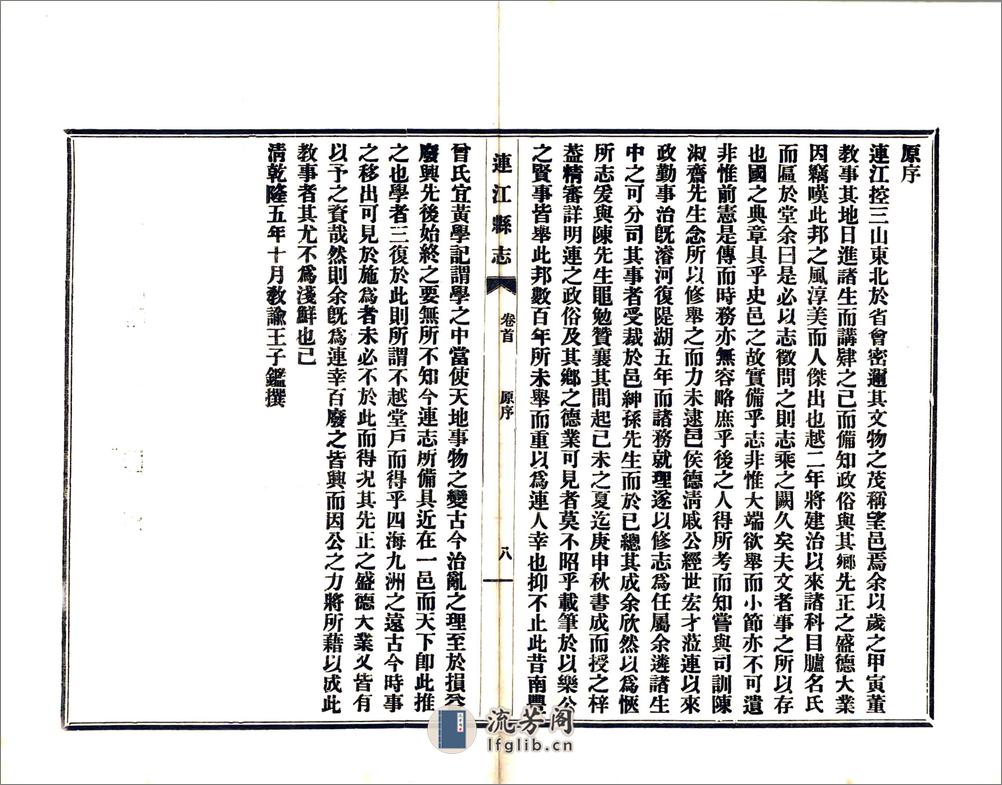 原序
連江控三山東北於省會密邇其文物之茂稱望邑焉余以歲之甲寅董
教事其地日進諸生而講肄之己而備知政俗與其鄉先正之盛德大業
因竊嘆此邦之風淳美而人傑出也越二年將建治以來諸科目臚名氏
而匾於堂余曰是必以志徵問之則志乘之闕久矣夫文者事之所以存
也國之典章具乎史邑之故實備乎志非惟大端欲舉而小節亦不可遺
非惟前憲是傳而時務亦無容略庶乎後之人得所考而知嘗與司訓陳
淑齋先生念所以修舉之而力未逮邑侯德淸戚公經世宏才蒞連以來
政勤事治旣濬河復隄湖五年而諸務就理遂以修志爲任屬余遴諸生
中之可分司其事者受裁於邑紳孫先生而於已總其成余欣然以爲愜
所志爰與陳先生黽勉贊襄其間起已未之夏迄庚申秋書成而授之梓
葢精審詳明連之政俗及其鄉之德業可見者莫不昭乎載筆於以樂公
之賢事皆舉此邦數百年所未舉而重以爲連人幸也抑不止此昔南豐
連江縣志 卷首 原序 八
曾氏宜黃學記謂學之中當使天地事物之變古今治亂之理至於損益
廢興先後始終之要無所不知今連志所備具近在一邑而天下卽此推
之也學者三復於此則所謂不越堂戶而得乎四海九洲之遠古今時事
之移出可見於施爲者未必不於此而得况其先正之盛德大業又皆有
以予之資哉然則余旣爲連幸百廢之皆興而因公之力將所藉以成此
教事者其尤不爲淺鮮也已
淸乾隆五年十月敎諭王子鑑撰
流芳阁
lfglib.cn